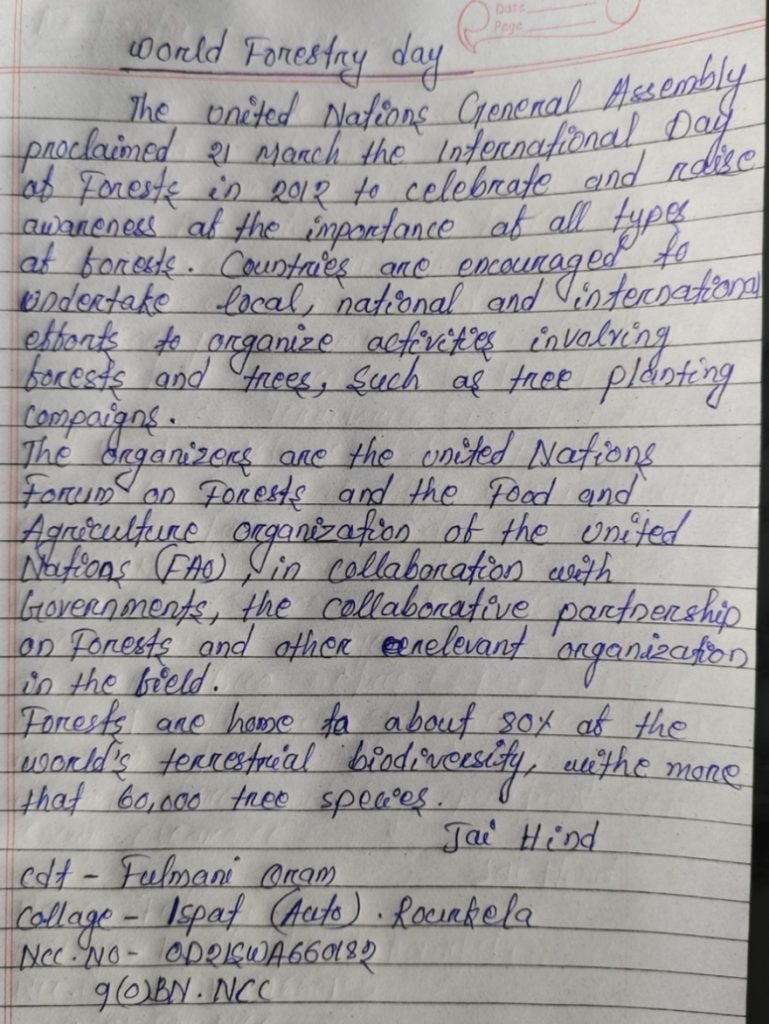 Date
Page
World Forestry day
The united Nations General Assembly
proclaimed 21 March the International Day
of Forests in 2012 to celebrate and raise
awareness of the importance of all types
of forests. Countries are encouraged to
undertake local, national and international
efforts to organize activities involving
forests and trees, such as tree planting
campaigns.
The organizers are the united Nations
Forum on Forests and the Food and
Agriculture organization of the united
Nations (FAO), in collaboration with
Governments, the collaborative partnership
on Forests and other relevant organization
in the field.
Forests are home to about 80% of the
world's terrestrial biodiversity, withe more
that 60,000 tree species.
Jai Hind
cdt - Fulmani Oram
Collage - Ispat (Auto). Rourkela
NCC. NO- OD21SWA660182
9(O)BN. NCC